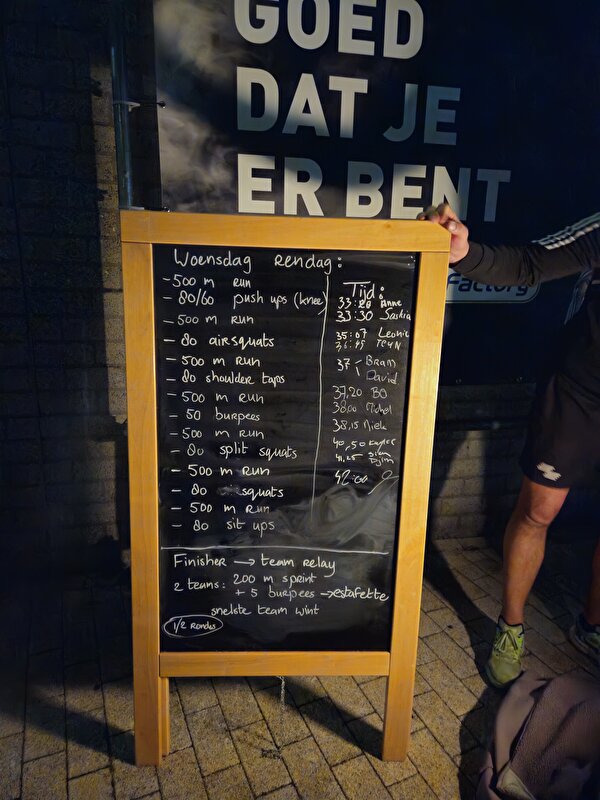 GOED
DAT JE
ER BENT
Factory
Woensdag Rendag:
- 500 m RUN
- 80/60 push ups (knee)
- 500 m RUN
- 80 airsquats
- 500 m Run
- 80 shoulder taps
- 500 m RUN
- 50 burpees
- 500 m RUN
- 80 split squats
- 500 m RUN
- 80 squats
- 500 m RUN
- 80 sit ups
Tijd:
33:28 Anne
33:30 Saskia
35:07 Leonie
36:45
37 - Bram
David
37,20 BO
38:00
38,15 Niek
40,50
41,25
42:00
Finisher → team relay
2 teams: 200 m sprint
+ 5 burpees → estafette
snelste team wint
1/2 Rondes